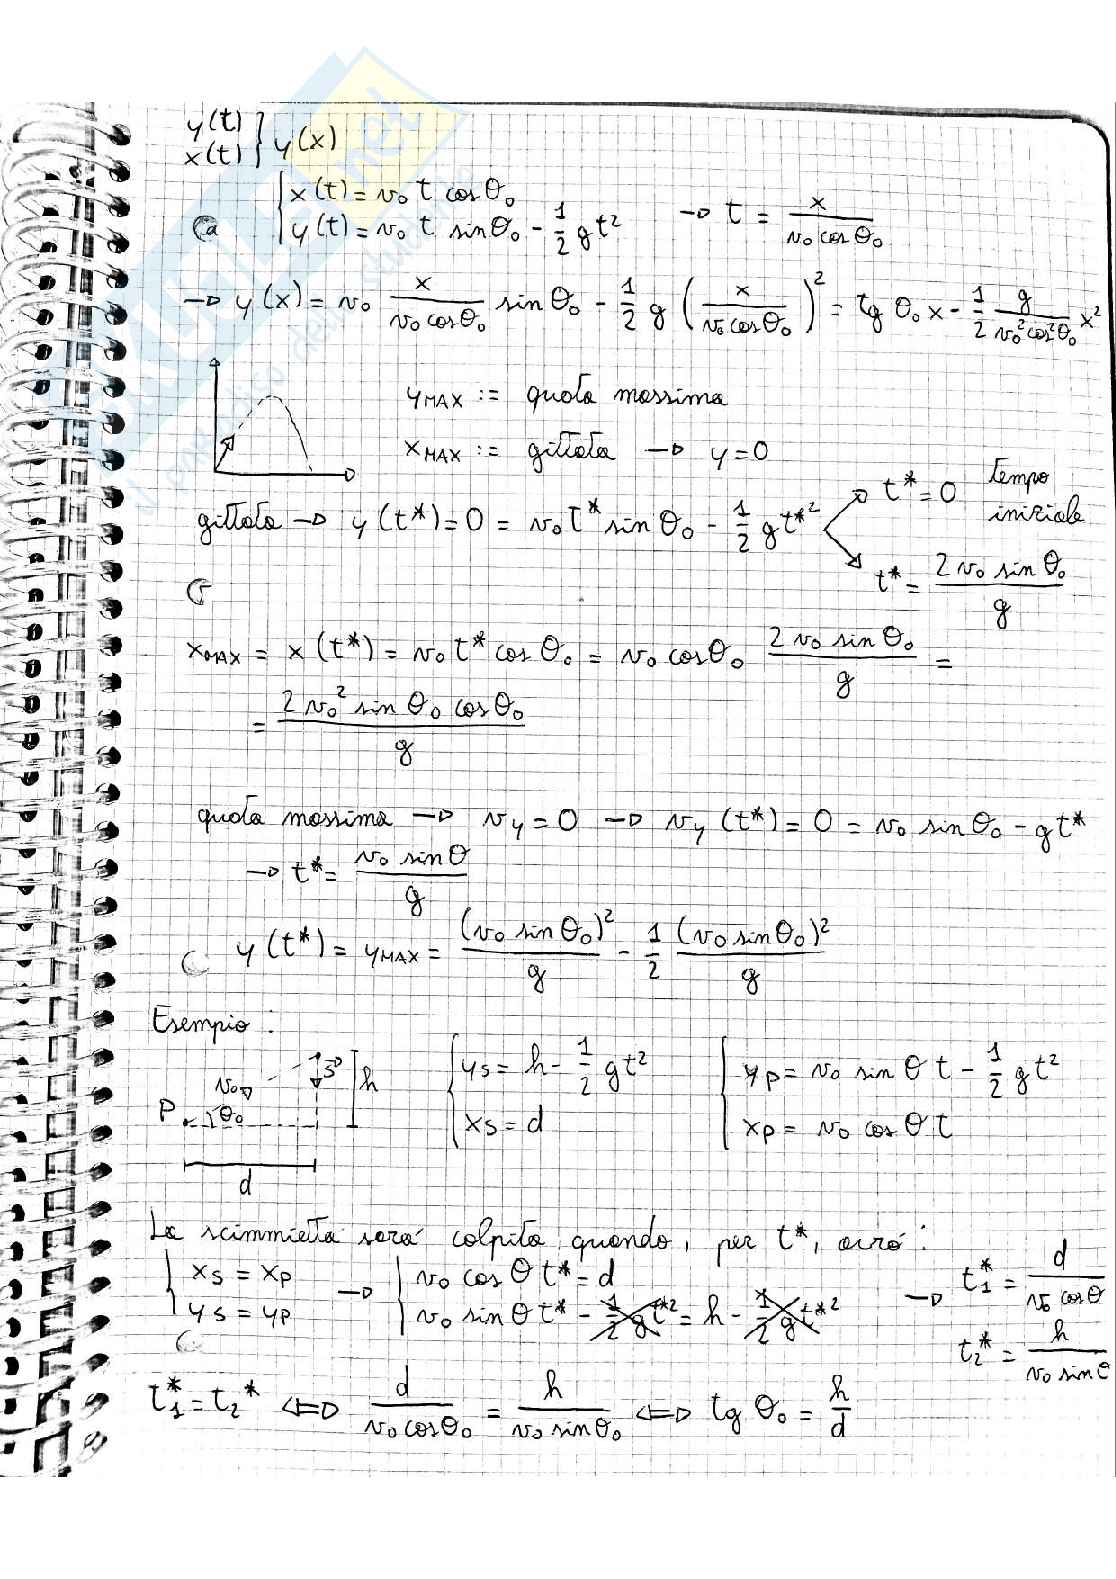 y(t)
x(t) } y(x)
{ x(t) = v₀ t cosθ₀
y(t) = v₀ t sinθ₀ - 1/2 g t² → t = x / (v₀ cosθ₀)
→ y(x) = v₀ x/(v₀ cosθ₀) sinθ₀ - 1/2 g (x/(v₀ cosθ₀))² = tg θ₀ x - 1/2 g/(v₀² cos²θ₀) x²
y MAX := quota massima
x MAX := gittata → y = 0
gittata → y(t*) = 0 = v₀ t* sinθ₀ - 1/2 g t*²
t* = 0 tempo iniziale
t* = 2 v₀ sin θ₀ / g
x MAX = x(t*) = v₀ t* cos θ₀ = v₀ cosθ₀ 2 v₀ sin θ₀ / g =
= 2 v₀² sin θ₀ cos θ₀ / g
quota massima → v_y = 0 → v_y (t*) = 0 = v₀ sin θ₀ - g t*
→ t* = v₀ sin θ / g
y(t*) = y MAX = (v₀ sin θ₀)² / g - 1/2 (v₀ sin θ₀)² / g
Esempio :
S
v₀
h
P
θ₀
d
{ y_S = h - 1/2 g t²
x_S = d
{ y_P = v₀ sin θ t - 1/2 g t²
x_P = v₀ cos θ t
La scimmietta sarà colpita quando, per t*, avrò :
{ x_S = x_P
y_S = y_P
→ { v₀ cos θ t* = d
v₀ sin θ t* - 1/2 g t*² = h - 1/2 g t*²
→ t₁* = d / (v₀ cos θ)
t₂* = h / (v₀ sin θ)
t₁* = t₂* ⇔ d / (v₀ cos θ₀) = h / (v₀ sin θ₀) ⇔ tg θ₀ = h/d